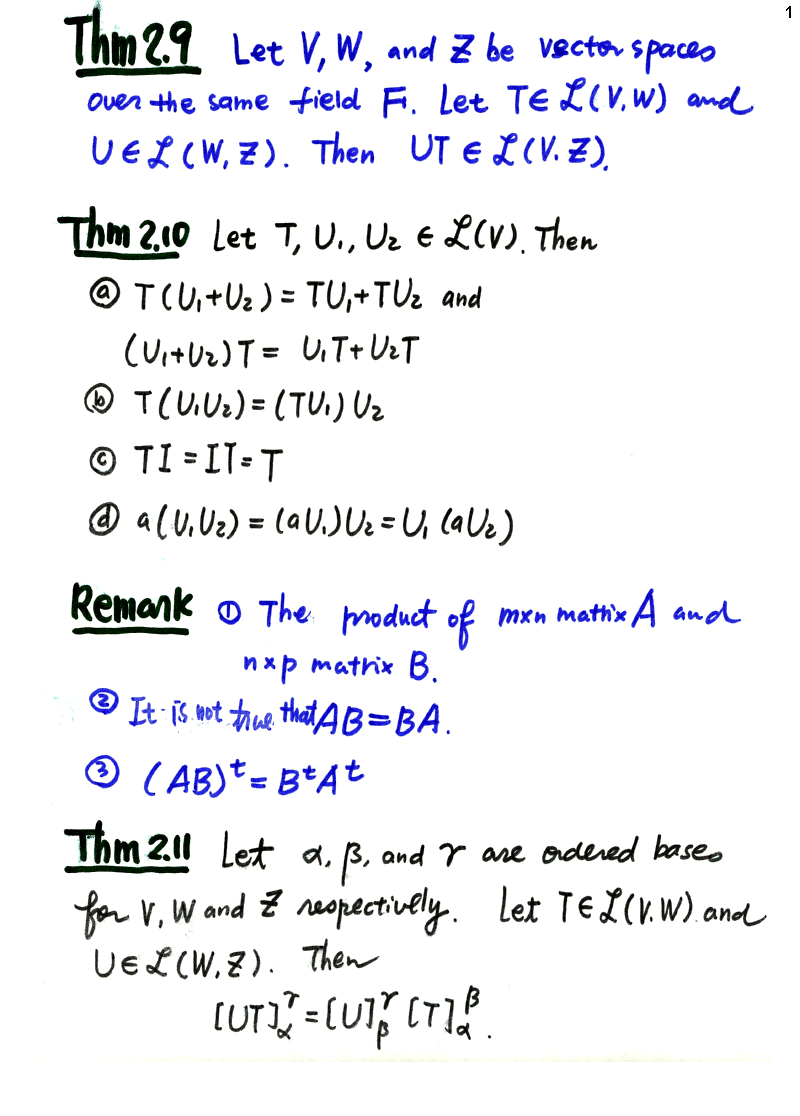 1
Thm 2.9 Let V, W, and Z be vector spaces
over the same field F. Let T∈ℒ(V,W) and
U∈ℒ(W,Z). Then UT∈ℒ(V,Z).
Thm 2.10 Let T, U₁, U₂ ∈ ℒ(V). Then
ⓐ T(U₁+U₂) = TU₁+TU₂ and
(U₁+U₂)T = U₁T+U₂T
ⓑ T(U₁U₂) = (TU₁)U₂
ⓒ TI = IT = T
ⓓ a(U₁U₂) = (aU₁)U₂ = U₁(aU₂)
Remark ① The product of m×n matrix A and
n×p matrix B.
② It is not true that AB=BA.
③ (AB)ᵗ = BᵗAᵗ
Thm 2.11 Let α, β, and γ are ordered bases
for V, W and Z respectively. Let T∈ℒ(V,W) and
U∈ℒ(W,Z). Then
[UT]_α^γ = [U]_β^γ [T]_α^β.